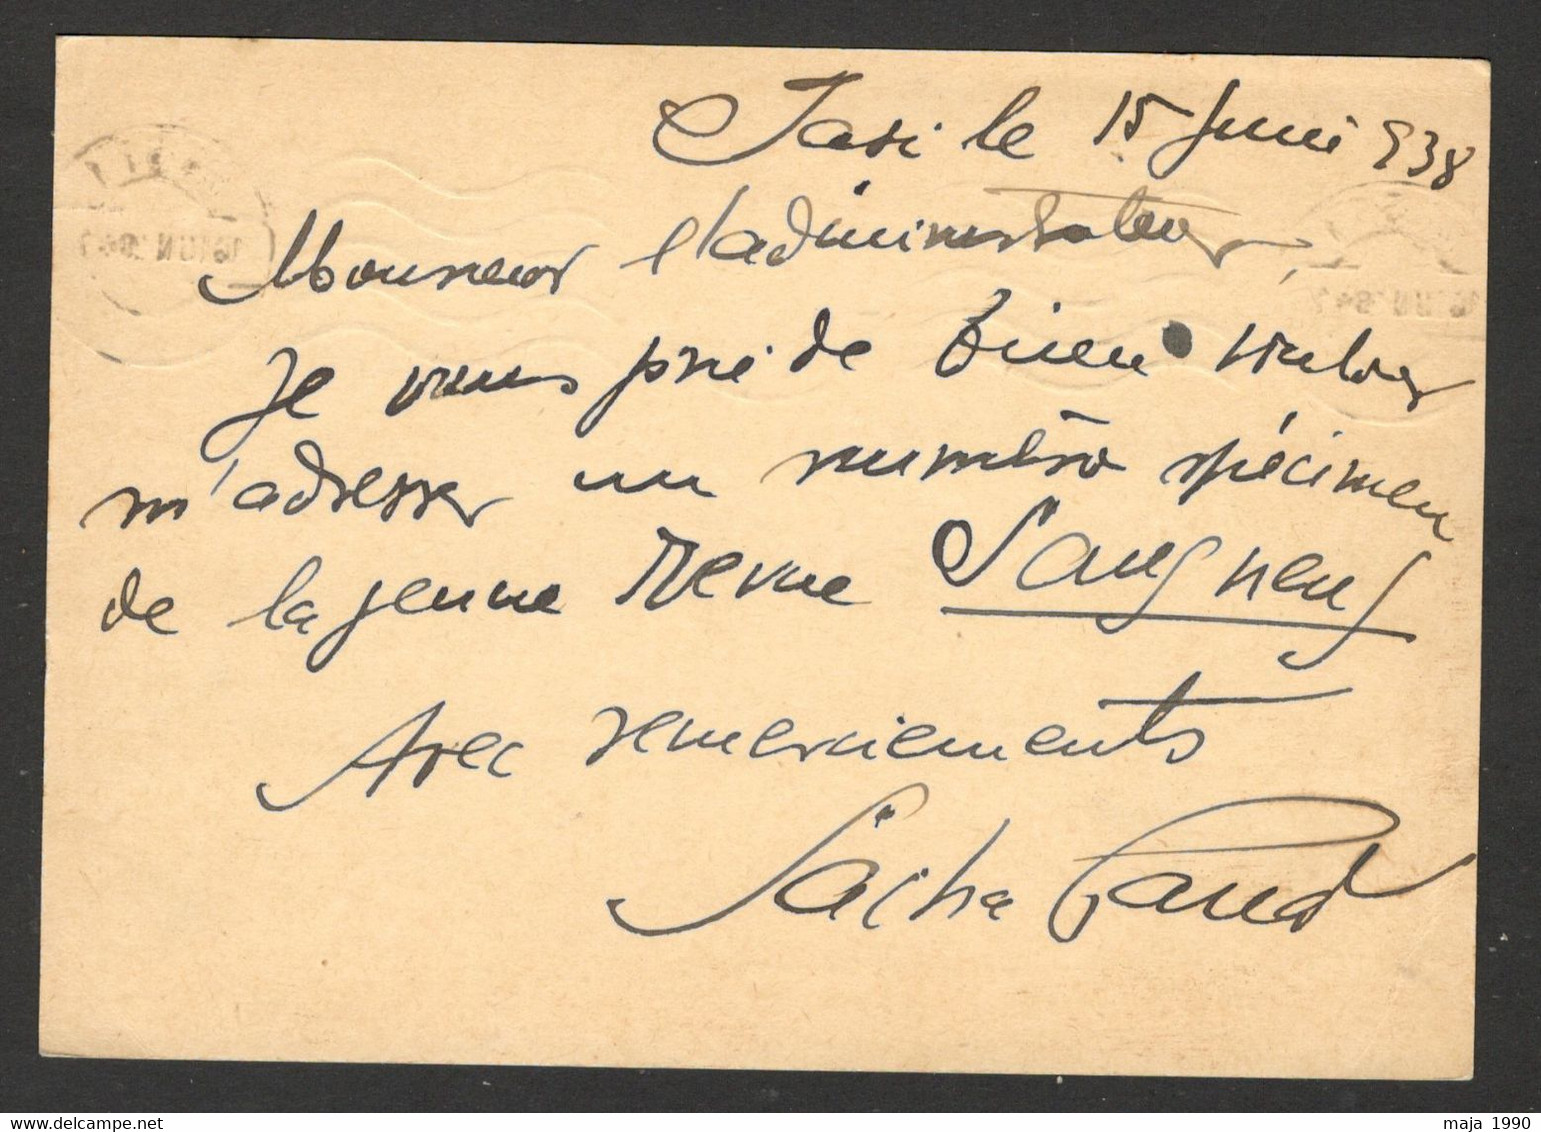 Iasi le 15 Juin 938
Monsieur l'administrateur,
Je vous prie de bien vouloir
m'adresser un numéro spécimen
de la jeune Revue Sang neuf
Avec remerciements
Sacha
maja 1990